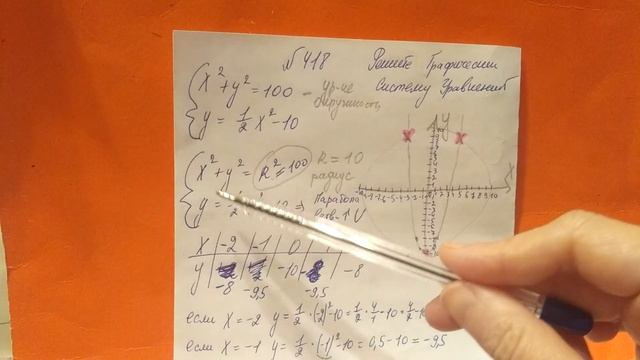 № 418 Решите Графически
Систему Уравнений
x² + y² = 100 - ур-ие окружность
y = 1/2 x² - 10
x² + y² = R² = 100 R = 10
радиус
y = Парабола
x | -2 | -1 | 0
y -10 -8
-8 -9,5 -9,5
если x = -2 y = 1/2 · (-2)² - 10 = 1/2 · 4/1 - 10 =
если x = -1 y = 1/2 · (-1)² - 10 = 0,5 - 10 = -9,5